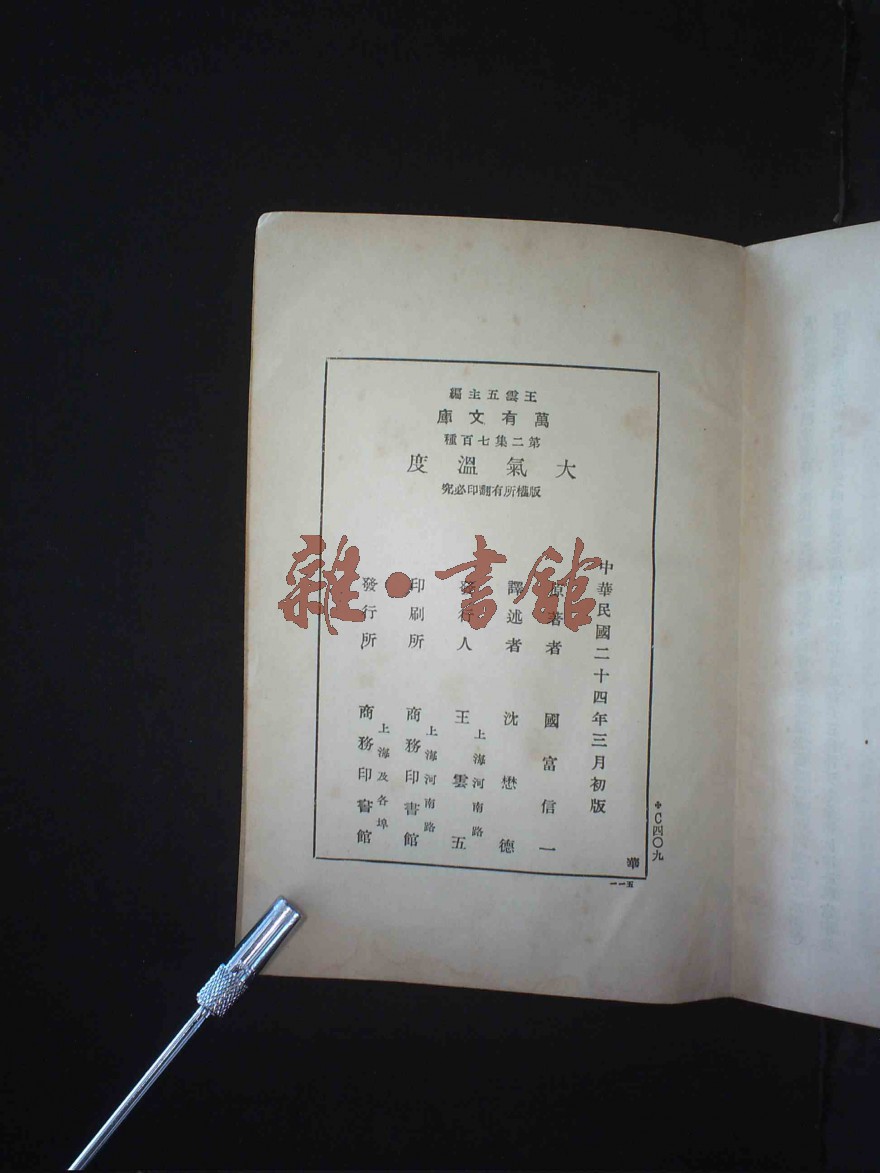 王雲五主編
萬有文庫
第二集七百種
大氣溫度
版權所有翻印必究
中華民國二十四年三月初版
原著者 國富信一
譯述者 沈懋德
發行人 王雲五
上海河南路
印刷所 商務印書館
上海河南路
發行所 商務印書館
上海及各埠
＊C四〇九
華
一一五
雜·書館